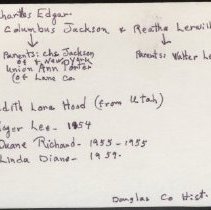 Charles Edgar
Columbus Jackson & Reatha Lerwill
Parents: Chs Jackson
of New York
Union Ann Pooler
of Lane Co.
Parents: Walter Le
dith Lona Hood (from Utah)
oger Lee - 1954
Duane Richard - 1955-1955
Linda Diane - 1959.
Douglas Co Hist.